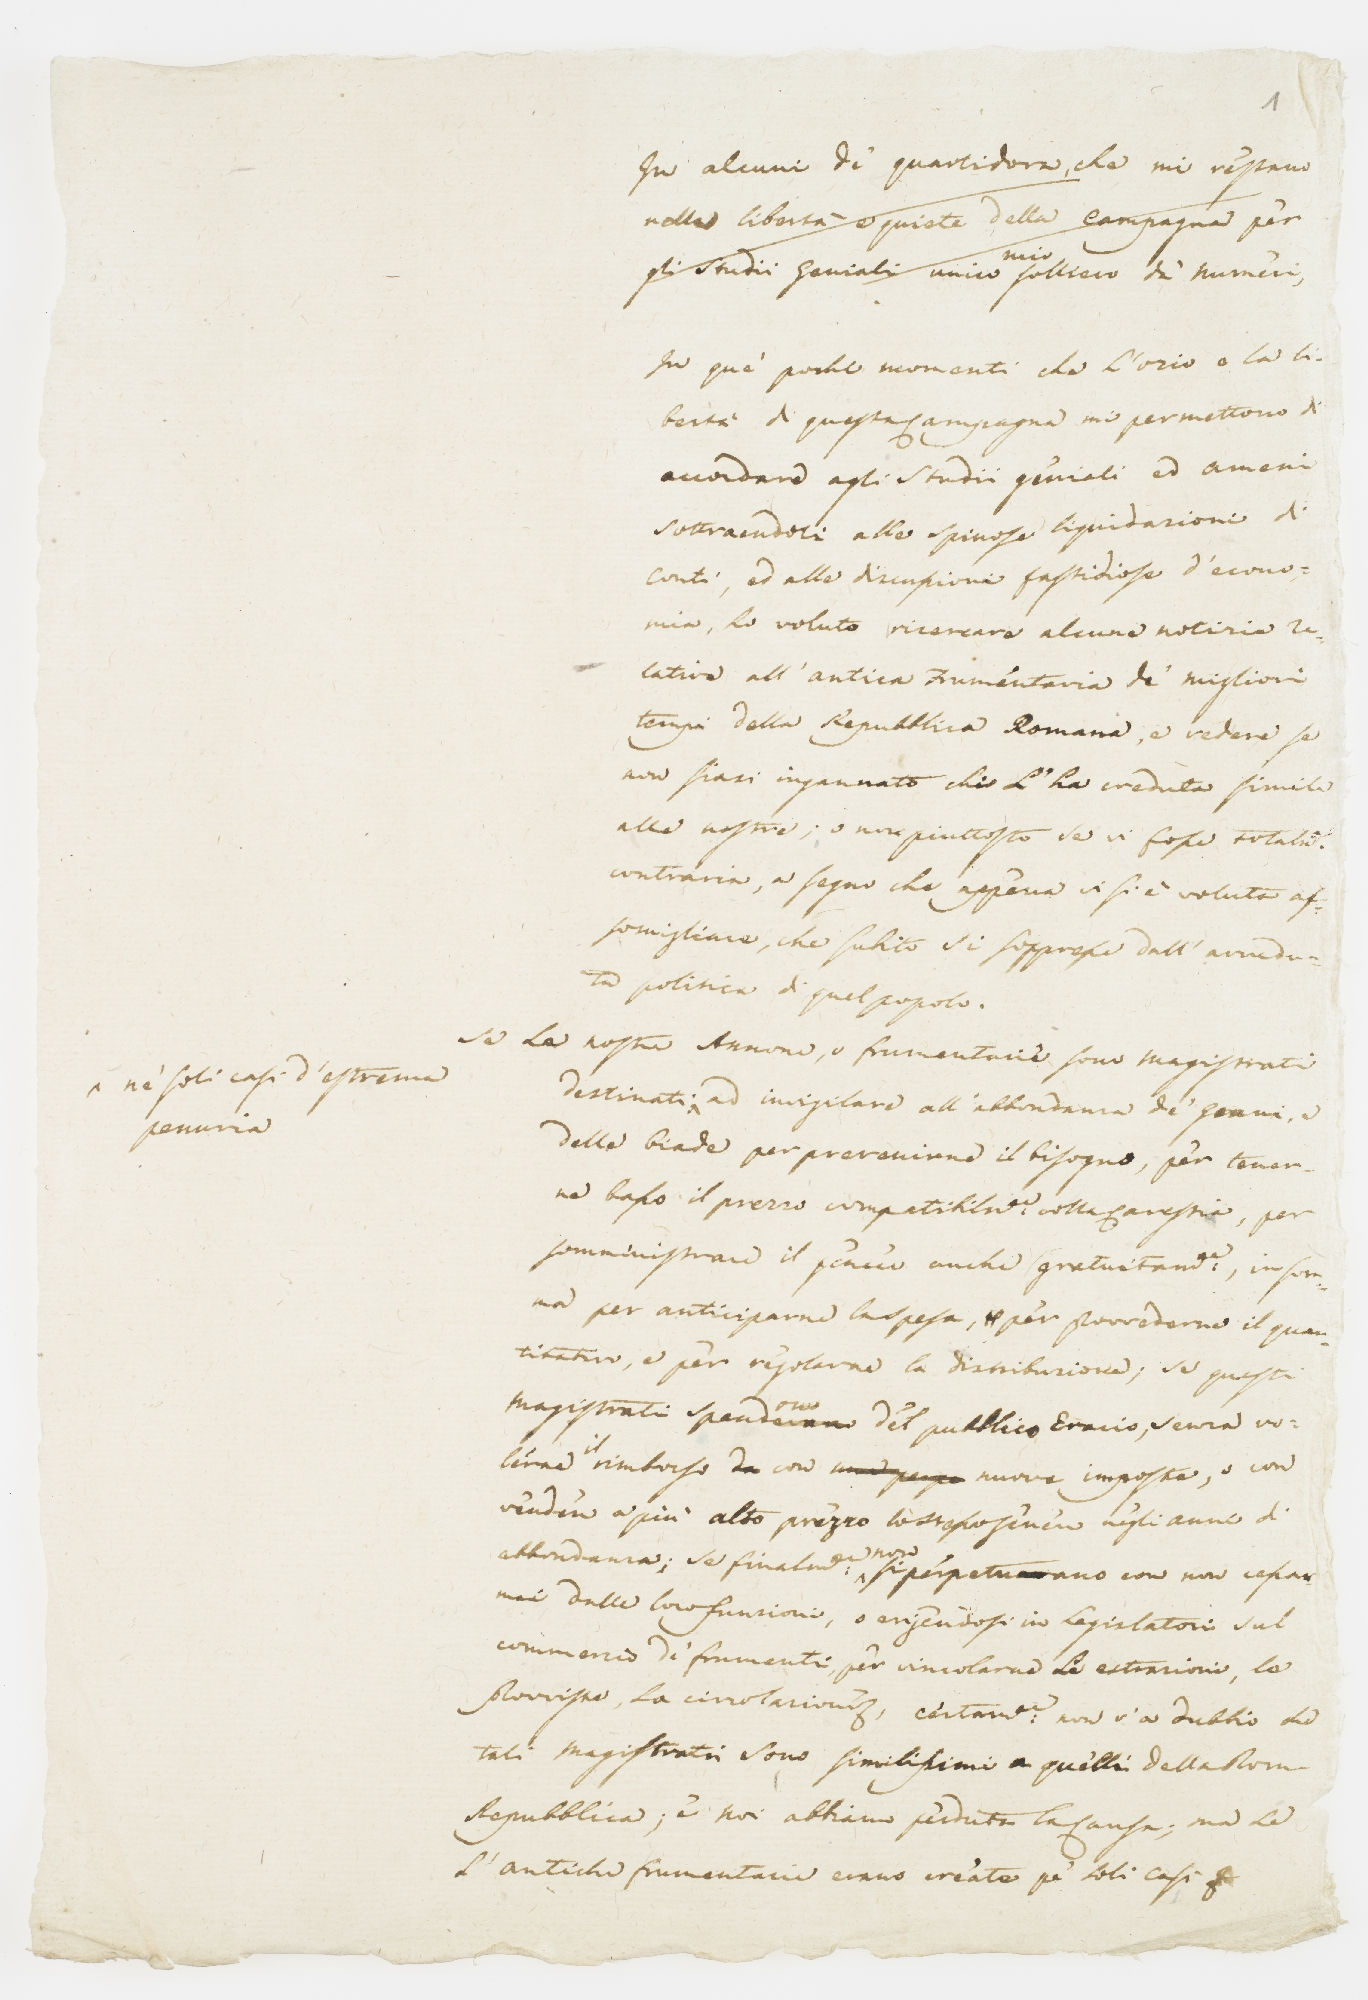 1
In alcuni de' quarti d'ora, che mi restano
nella libertà e quiete della Campagna per
gli Studii Geniali unico mio sollievo da' numeri,
In que' pochi momenti che l'ozio e la li-
bertà di questa Campagna mi permettono di
accordare agli Studii geniali ed ameni
sottraendoli alle spinose liquidazioni di
conti, ed alle discussioni fastidiose d'econo-
mia, ho voluto ricercare alcune notizie re-
lative all'antica frumentaria de' migliori
tempi della Repubblica Romana, e vedere se
non siasi ingannato chi l'ha creduta simile
alle nostre; o non piuttosto se vi fosse totalme.
contraria, a segno che appena vi si è voluta as-
somigliare, che subito si soppresse dall'avvedu-
ta politica di quel popolo.
Se le nostre Annone, o frumentarie sono magistrati
destinati ^ ad invigilare all'abbondanza de' grani, e
^ ne' soli casi d'estrema
penuria
delle biade per prevenirne il bisogno, per tener-
ne basso il prezzo compatibilme. colla Carestia, per
somministrare il genere anche gratuitame., insom-
ma per anticiparne la spesa, per provvederne il quan-
titativo, e per regolarne la distribuzione; se questi
magistrati spenderano ono del pubblico Erario, senza vo-
lerne il rimborso da con nuove imposte, o con
vendere a più alto prezzo lo stesso genere negli anni di
abbondanza; se finalme. ^ non si perpetuano con non cessar
mai dalle loro funzioni, o erigendosi in Legislatori sul
commercio de' frumenti, per vincolarne le estrazioni, le
provviste, la circolazione, certame. non v'a dubbio che
tali magistrati sono similissimi a quelli della Rom
Repubblica; e noi abbiamo perduta la Causa; ma le
l'antiche frumentarie erano create pe' soli casi